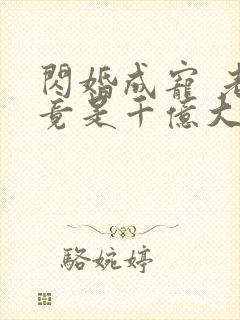 閃婚成寵 老
竟是千億大
駱婉婷